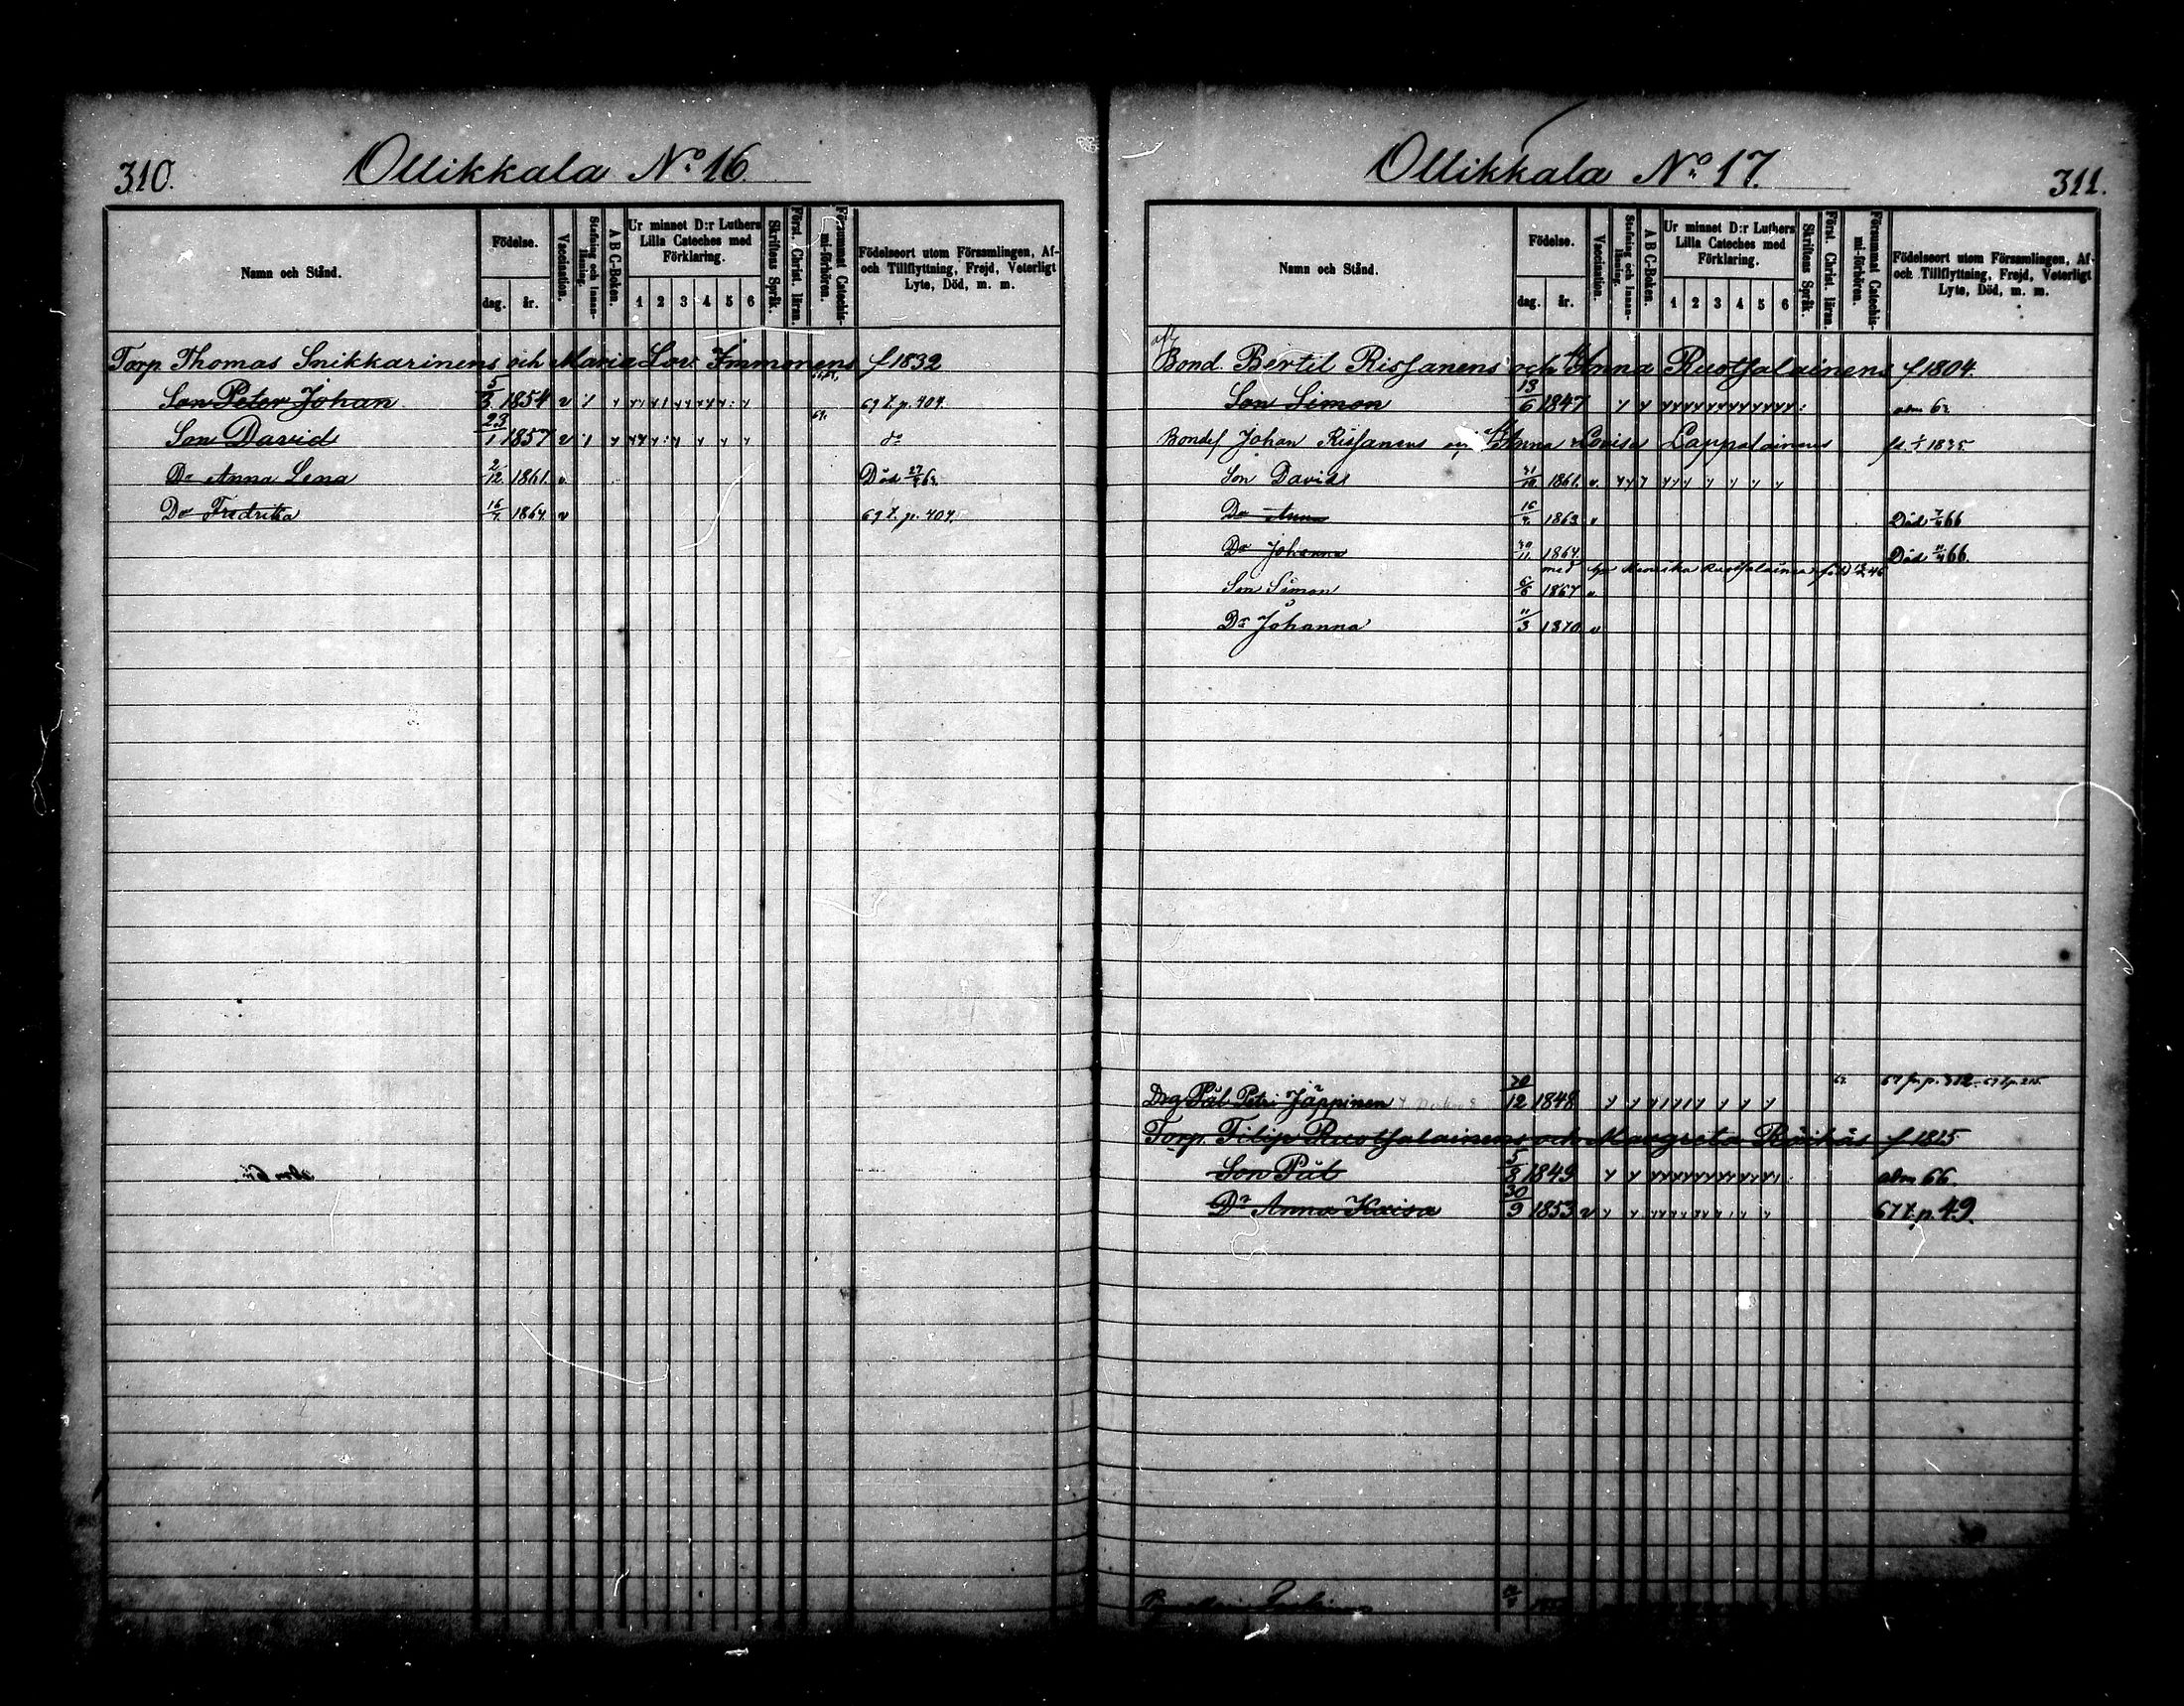 310. Ollikkala No 16.
Namn och Stånd. Födelse. dag. år. Vaccination. Stafning och Innanläsning. A B C-Boken. Ur minnet D:r Luthers Lilla Cateches med Förklaring. 1 2 3 4 5 6 Skriftens Språk. Först. Christ. läran. Försummat Catechismi-förhören. Födelseort utom Församlingen, Af- och Tillflyttning, Frejd, Veterligt Lyte, Död, m. m.
Torp. Thomas Snikkarinens och Maria Lov. Immonens f 1832
Son Peter Johan 5/3 1854 v 69 t. p. 404.
Son David 23/1 1857 v 69. do
Dr Anna Lena 2/12 1861. v. Död
Dr Fredrika 16/4 1864. v 69 t. p. 404.
Ollikkala No 17. 311.
Namn och Stånd. Födelse. dag. år. Vaccination. Stafning och Innanläsning. A B C-Boken. Ur minnet D:r Luthers Lilla Cateches med Förklaring. 1 2 3 4 5 6 Skriftens Språk. Först. Christ. läran. Försummat Catechismi-förhören. Födelseort utom Församlingen, Af- och Tillflyttning, Frejd, Veterligt Lyte, Död, m. m.
Bond. Bertil Rissanens och Anna Ruotsalainens f 1804.
Son Simon 13/6 1847
Bondes. Johan Rissanens och Anna Lovisa Lappalainens 1835.
Son David 1861. v.
Dr Anna 16 1863 v Död 66
Dr Johanna 1864. Död 66.
med Ruotsalainen född 46
Son Simon 6/6 1867 v.
Dr Johanna 11/3 1870 v
Drg Pål Petri Jäppinen 20/12 1848 67 fr. p. 312.
Torp. Filip Ruotsalainens och Margreta f 1815
Son Pål 5/8 1849 adm 66.
Dr Anna Kaisa 30/9 1853 v 67 t. p. 49.